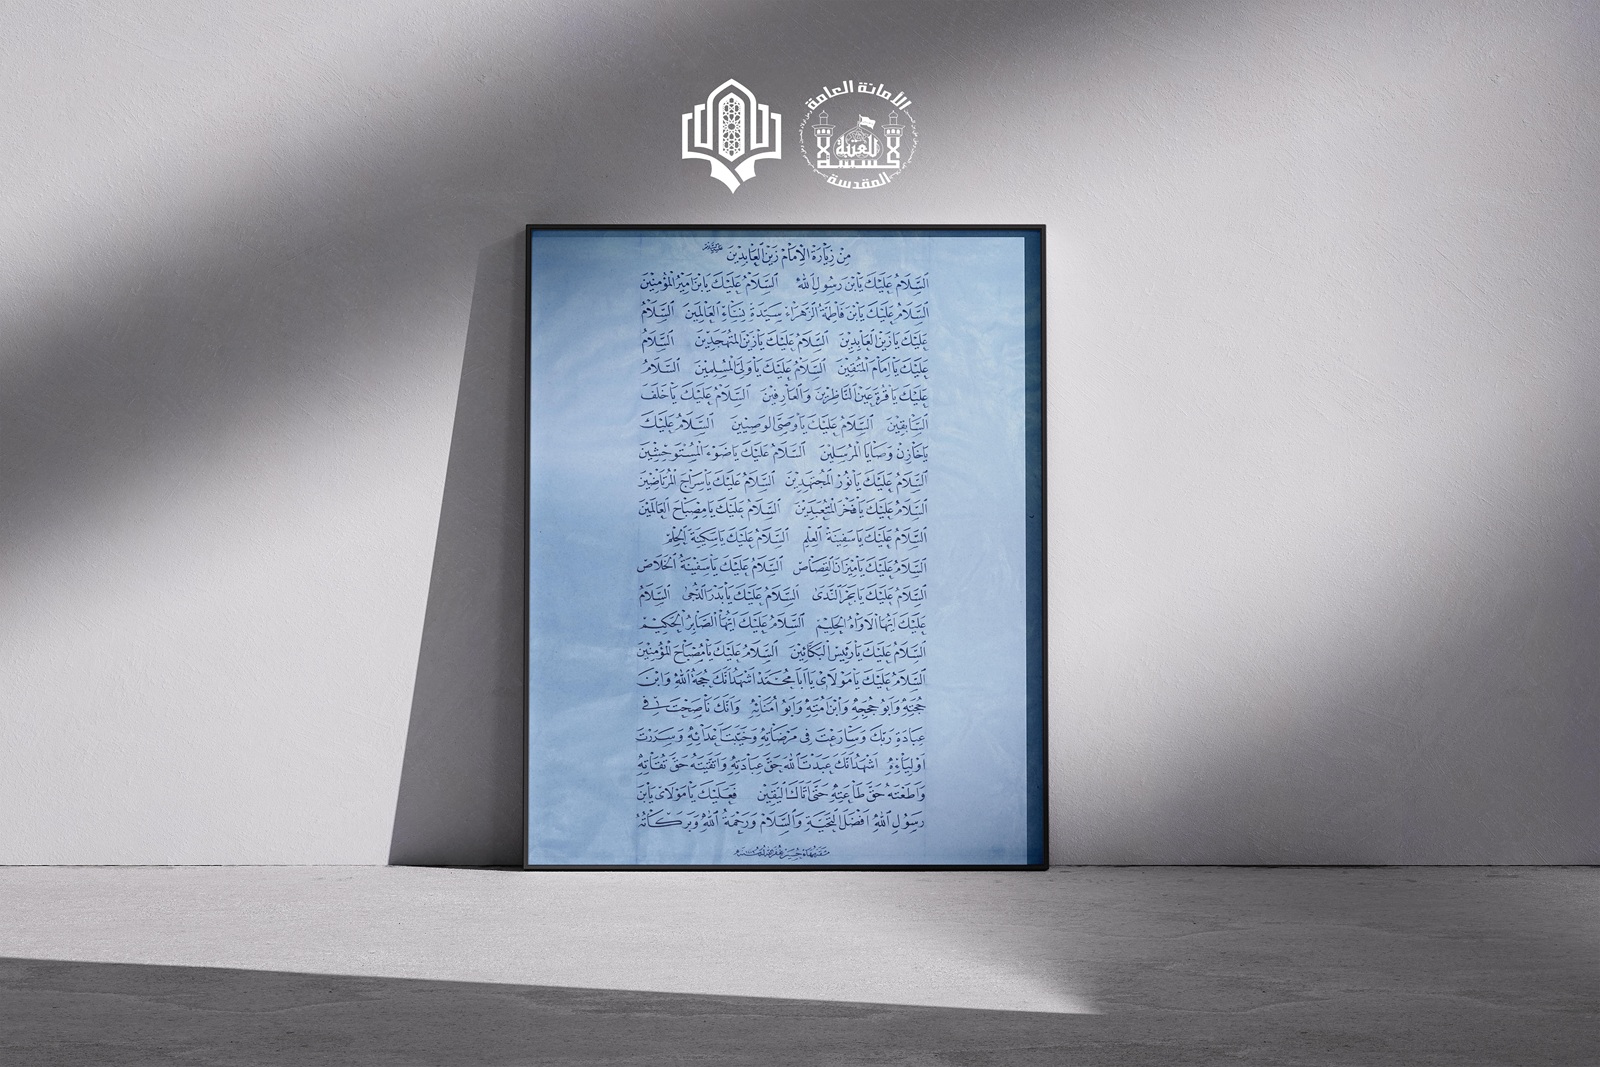 الأمانة العامة
للعتبة
الحسينية
المقدسة
مِنْ زِيَارَةِ الْإِمَامِ زَيْنِ الْعَابِدِينَ
السَّلَامُ عَلَيْكَ يَابْنَ رَسُولِ اللهِ السَّلَامُ عَلَيْكَ يَابْنَ أَمِيرِ الْمُؤْمِنِينَ
السَّلَامُ عَلَيْكَ يَابْنَ فَاطِمَةَ الزَّهْرَاءِ سَيِّدَةِ نِسَاءِ الْعَالَمِينَ السَّلَامُ
عَلَيْكَ يَا زَيْنَ الْعَابِدِينَ السَّلَامُ عَلَيْكَ يَا زَيْنَ الْمُتَهَجِّدِينَ السَّلَامُ
عَلَيْكَ يَا إِمَامَ الْمُتَّقِينَ السَّلَامُ عَلَيْكَ يَا وَلِيَّ الْمُسْلِمِينَ السَّلَامُ
عَلَيْكَ يَا قُرَّةَ عَيْنِ النَّاظِرِينَ وَالْعَارِفِينَ السَّلَامُ عَلَيْكَ يَا خَلَفَ
السَّابِقِينَ السَّلَامُ عَلَيْكَ يَا وَصِيَّ الْوَصِيِّينَ السَّلَامُ عَلَيْكَ
يَا خَازِنَ وَصَايَا الْمُرْسَلِينَ السَّلَامُ عَلَيْكَ يَا ضَوْءَ الْمُسْتَوْحِشِينَ
السَّلَامُ عَلَيْكَ يَا نُورَ الْمُجْتَهِدِينَ السَّلَامُ عَلَيْكَ يَا سِرَاجَ الْمُرْتَاضِينَ
السَّلَامُ عَلَيْكَ يَا فَخْرَ الْمُتَعَبِّدِينَ السَّلَامُ عَلَيْكَ يَا مِصْبَاحَ الْعَالَمِينَ
السَّلَامُ عَلَيْكَ يَا سَفِينَةَ الْعِلْمِ السَّلَامُ عَلَيْكَ يَا سَكِينَةَ الْحِلْمِ
السَّلَامُ عَلَيْكَ يَا مِيزَانَ الْقِصَاصِ السَّلَامُ عَلَيْكَ يَا سَفِينَةَ الْخَلَاصِ
السَّلَامُ عَلَيْكَ يَا بَحْرَ النَّدَى السَّلَامُ عَلَيْكَ يَا بَدْرَ الدُّجَى السَّلَامُ
عَلَيْكَ أَيُّهَا الْأَوَّاهُ الْحَلِيمُ السَّلَامُ عَلَيْكَ أَيُّهَا الصَّابِرُ الْحَكِيمُ
السَّلَامُ عَلَيْكَ يَا رَئِيسَ الْبَكَّائِينَ السَّلَامُ عَلَيْكَ يَا مِصْبَاحَ الْمُؤْمِنِينَ
السَّلَامُ عَلَيْكَ يَا مَوْلَايَ يَا أَبَا مُحَمَّدٍ أَشْهَدُ أَنَّكَ حُجَّةُ اللهِ وَابْنُ
حُجَّتِهِ وَأَبُو حُجَجِهِ وَابْنُ أَمِينِهِ وَأَبُو أُمَنَائِهِ وَأَنَّكَ نَاصَحْتَ فِي
عِبَادَةِ رَبِّكَ وَسَارَعْتَ فِي مَرْضَاتِهِ وَخَيَّبْتَ أَعْدَائَهُ وَسَرَرْتَ
أَوْلِيَاءَهُ أَشْهَدُ أَنَّكَ عَبَدْتَ اللهَ حَقَّ عِبَادَتِهِ وَاتَّقَيْتَهُ حَقَّ تُقَاتِهِ
وَأَطَعْتَهُ حَقَّ طَاعَتِهِ حَتَّى أَتَاكَ الْيَقِينُ فَعَلَيْكَ يَا مَوْلَايَ يَابْنَ
رَسُولِ اللهِ أَفْضَلُ التَّحِيَّةِ وَالسَّلَامُ وَرَحْمَةُ اللهِ وَبَرَكَاتُهُ